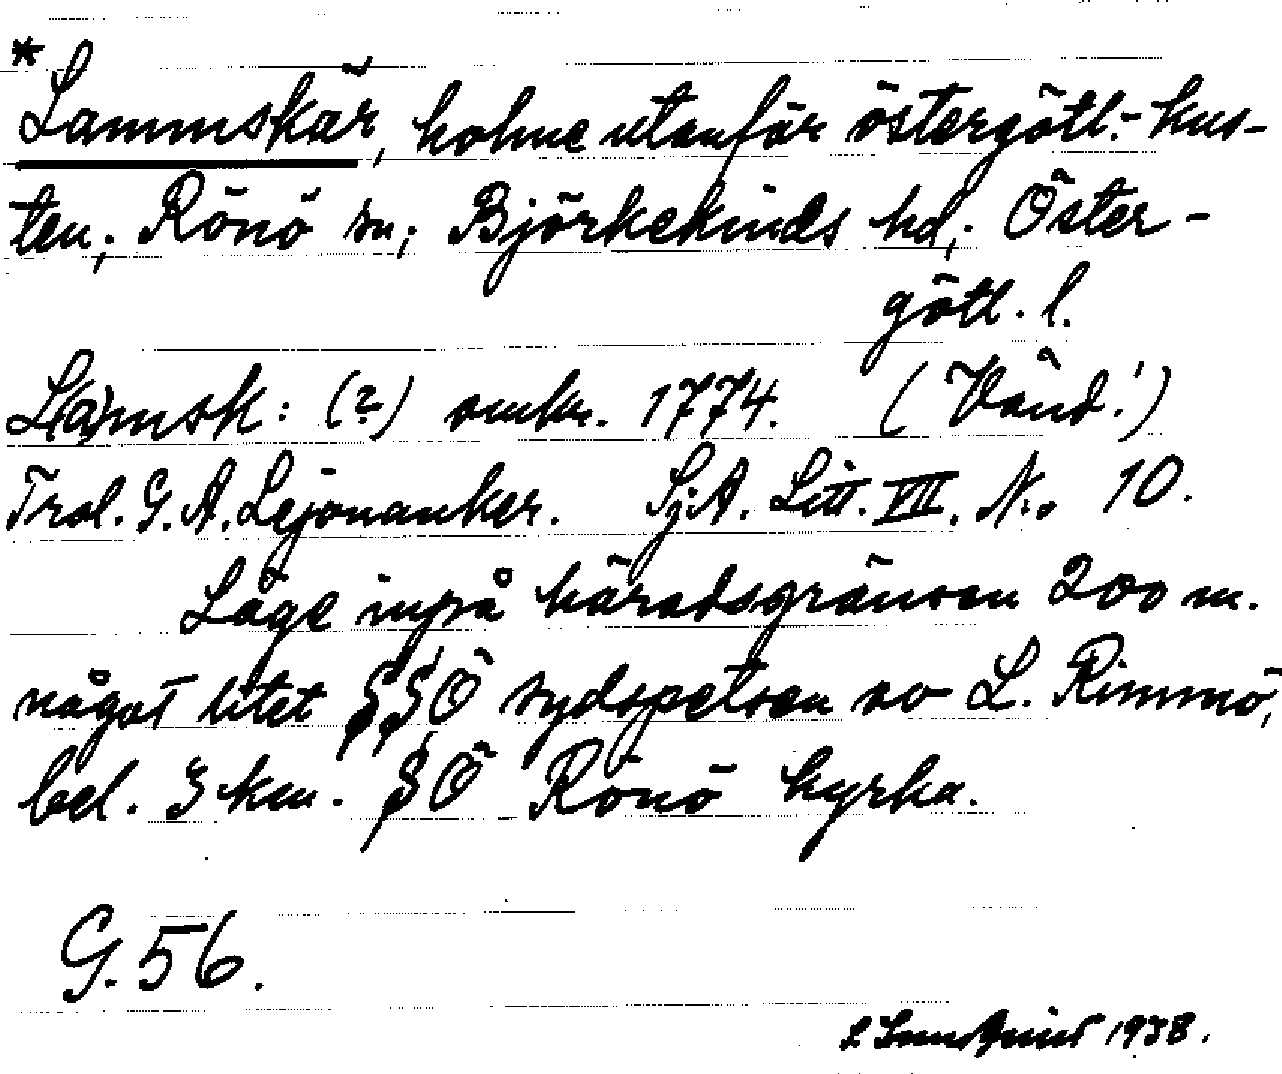 *Lammskär, holme utanför östergötl.-kus-
ten; Rönö sn; Björkekinds hd; Öster-
götl. l.
L(a)msk: (?) omkr. 1774. (Vänd!)
Trol. G. A. Lejonanker. SjA. Litt. VII. No 10.
Läge inpå häradsgränsen 200 m.
något litet SSÖ sydspetsen av L. Rimmö,
bel. 3 km. SÖ Rönö kyrka.
G. 56.
1938.